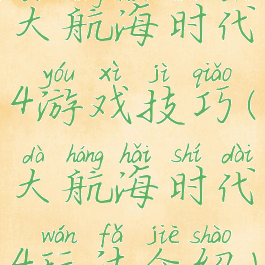 大航海时代
yóu xì jì qiǎo
4游戏技巧(
dà háng hǎi shí dài
大航海时代
wán fǎ jiè shào
4玩法介绍)